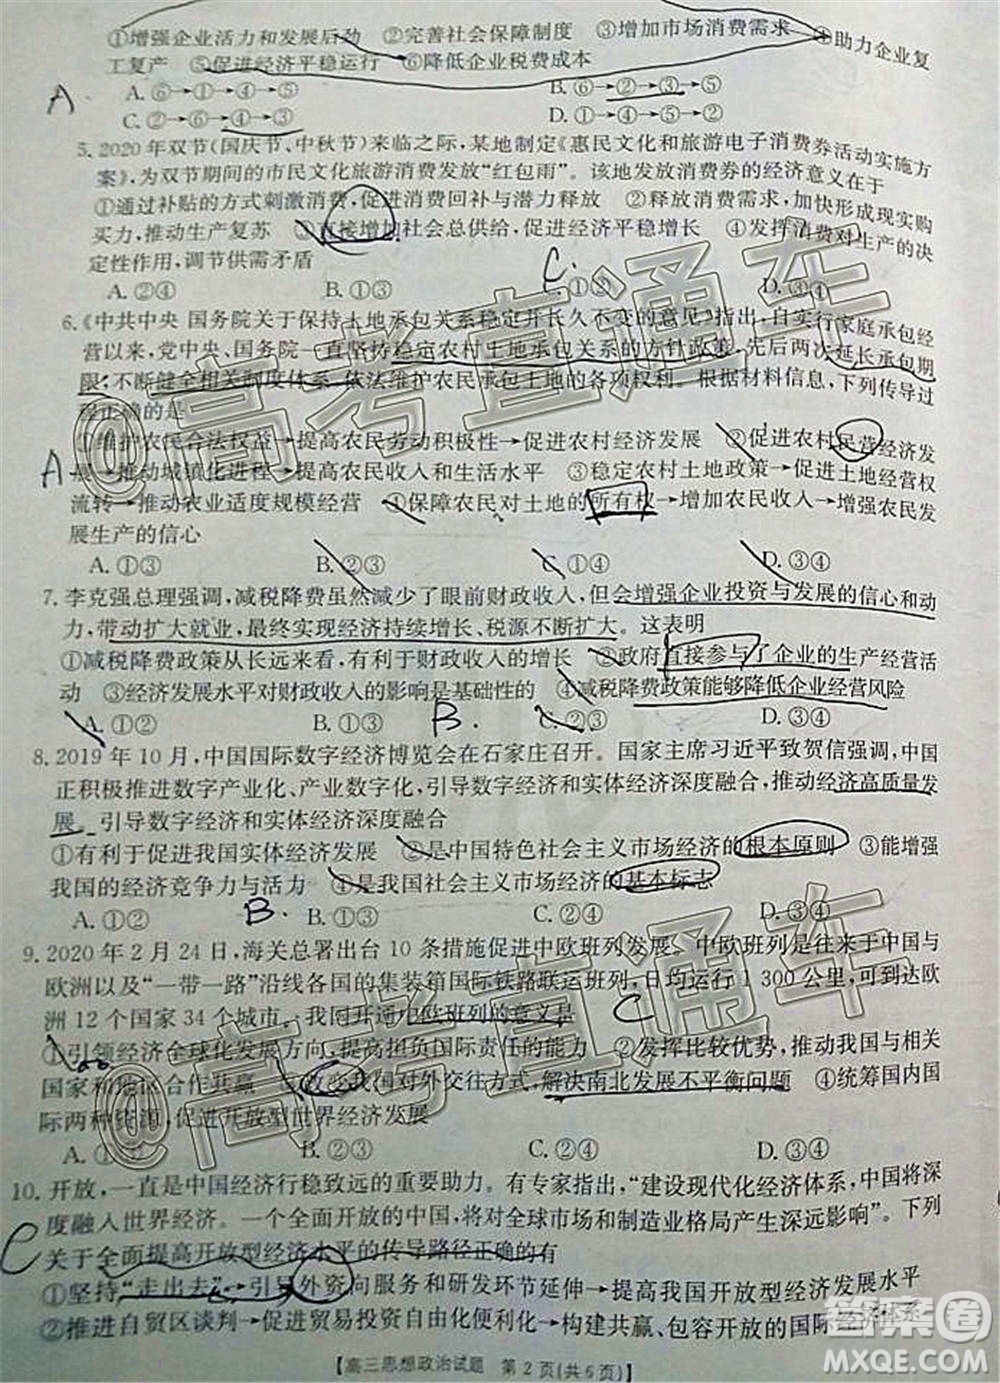 ①增强企业活力和发展后劲 ②完善社会保障制度 ③增加市场消费需求 ④助力企业复
工复产 ⑤促进经济平稳运行 ⑥降低企业税费成本
A. ⑥→①→④→⑤ B. ⑥→②→③→⑤
A
C. ②→⑥→④→③ D. ②→①→④→⑤
5. 2020年双节(国庆节、中秋节)来临之际,某地制定《惠民文化和旅游电子消费券活动实施方
案》,为双节期间的市民文化旅游消费发放“红包雨”。该地发放消费券的经济意义在于
①通过补贴的方式刺激消费,促进消费回补与潜力释放 ②释放消费需求,加快形成现实购
买力,推动生产复苏 ③直接增加社会总供给,促进经济平稳增长 ④发挥消费对生产的决
定性作用,调节供需矛盾
C.
A. ②④ B. ①③ ①② D. ③④
6.《中共中央 国务院关于保持土地承包关系稳定并长久不变的意见》指出,自实行家庭承包经
营以来,党中央、国务院一直坚持稳定农村土地承包关系的方针政策,先后两次延长承包期
限,不断健全相关制度体系,依法维护农民承包土地的各项权利。根据材料信息,下列传导过
程正确的是
①维护农民合法权益→提高农民劳动积极性→促进农村经济发展 ②促进农村民营经济发
A 展→推动城镇化进程→提高农民收入和生活水平 ③稳定农村土地政策→促进土地经营权
流转→推动农业适度规模经营 ④保障农民对土地的所有权→增加农民收入→增强农民发
展生产的信心
A. ①③ B. ②③ C. ①④ D. ③④
7. 李克强总理强调,减税降费虽然减少了眼前财政收入,但会增强企业投资与发展的信心和动
力,带动扩大就业,最终实现经济持续增长、税源不断扩大。这表明
①减税降费政策从长远来看,有利于财政收入的增长 ②政府直接参与了企业的生产经营活
动 ③经济发展水平对财政收入的影响是基础性的 ④减税降费政策能够降低企业经营风险
A. ①② B. ①③ B. C. ②③ D. ③④
8. 2019年10月,中国国际数字经济博览会在石家庄召开。国家主席习近平致贺信强调,中国
正积极推进数字产业化、产业数字化,引导数字经济和实体经济深度融合,推动经济高质量发
展。引导数字经济和实体经济深度融合
①有利于促进我国实体经济发展 ②是中国特色社会主义市场经济的根本原则 ③能增强
我国的经济竞争力与活力 ④是我国社会主义市场经济的基本标志
A. ①② B. B. ①③ C. ②④ D. ③④
9. 2020年2月24日,海关总署出台10条措施促进中欧班列发展。中欧班列是指中国与
欧洲以及“一带一路”沿线各国的集装箱国际铁路联运班列,日均运行1 300公里,可到达欧
洲12个国家34个城市。我国开通中欧班列的意义是
C
①引领经济全球化发展方向,提高担负国际责任的能力 ②发挥比较优势,推动我国与相关
国家和地区合作共赢 ③改变我国对外交往方式,解决南北发展不平衡问题 ④统筹国内国
际两种资源,促进开放型世界经济发展
A. ①③ B. ②③ C. ②④ D. ①④
10. 开放,一直是中国经济行稳致远的重要助力。有专家指出,“建设现代化经济体系,中国将深
度融入世界经济。一个全面开放的中国,将对全球市场和制造业格局产生深远影响”。下列
C 关于全面提高开放型经济水平的传导路径正确的有
①坚持“走出去”→引导外资向服务和研发环节延伸→提高我国开放型经济发展水平
②推进自贸区谈判→促进贸易投资自由化便利化→构建更具包容性的国际经济体系
【高三思想政治试题 第2页(共6页)】
@高考直通车
@高考直通车
答案卷
MXQE.COM